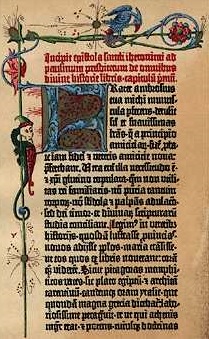 Incipit epistola sancti iheronimi ad
paulinum presbiterum de omnibus
divine historie libris capitulu pmu.
Frater ambrosius
tua michi munus-
cula pferens. detulit
sil et suavissimas
lras. q a principio
amiciciar. fide pba-
te iam fidei et veteris amicicie nova:
pferebant. Vera eni illa necessitudo e.
et xpi glutino copulata: qm non utili-
tas rei familiaris. no pncia tantum
corpor. no subdola et palpas adulaco:
sed dei timor. et divinar scripturar
studia conciliant. legim in veterib
historijs. quosda lustrasse puincias.
novos adijsse plos. maria trasisse.
ut eos quos ex libris noverant: cora
q viderent. Sicut pitagoras memphi-
ticos vates. sic plato egiptu. et archita
tarentinu. eandemq oram ytalie. que
quonda magna grecia dicebat: labo-
riosissime peragravit. et ut qui athenis
mgr erat. et potens. cuiusq doctrinas